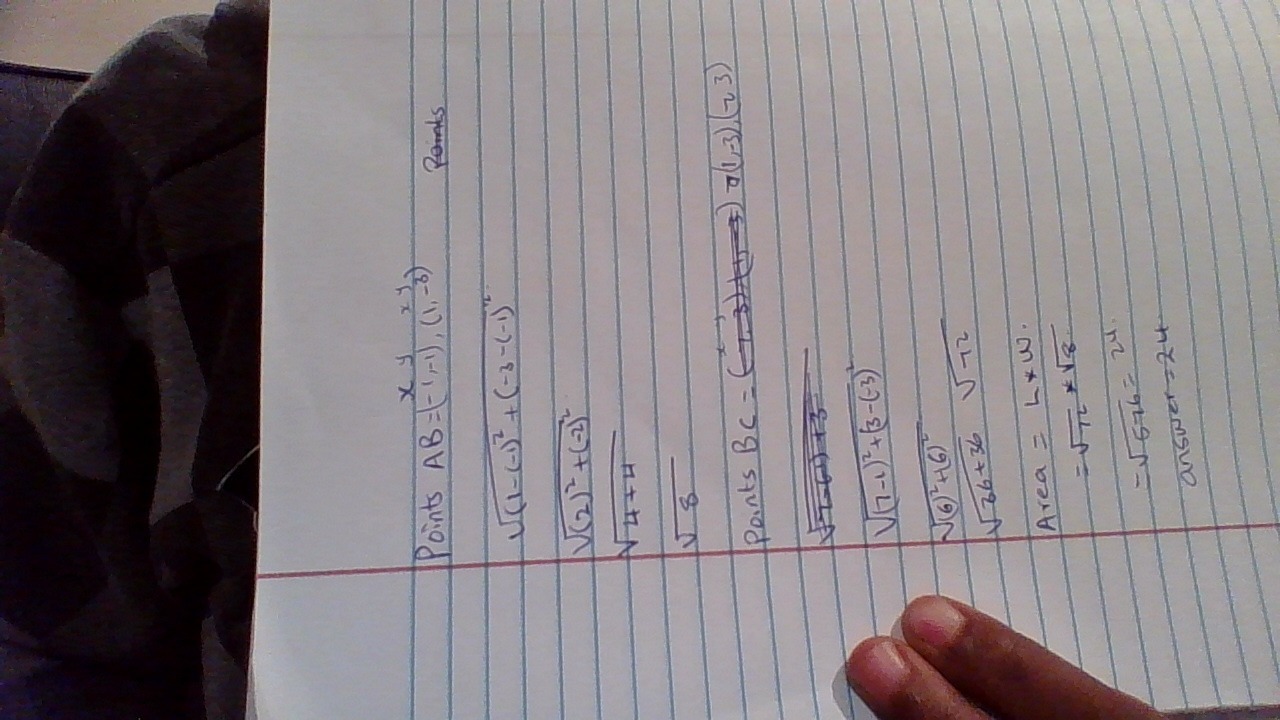 x y x y
Points AB=(-1,-1),(1,-3) Points
√(1-(-1)² + (-3-(-1)²
√(2)² + (-2)²
√4+4
√8
x y
Points BC = (1,-3),(7,3)
√(7-1)² + (3-(-3)²
√(6)²+(6)²
√36+36 √72
Area = L * W.
= √72 * √8
= √576 = 24.
answer = 24